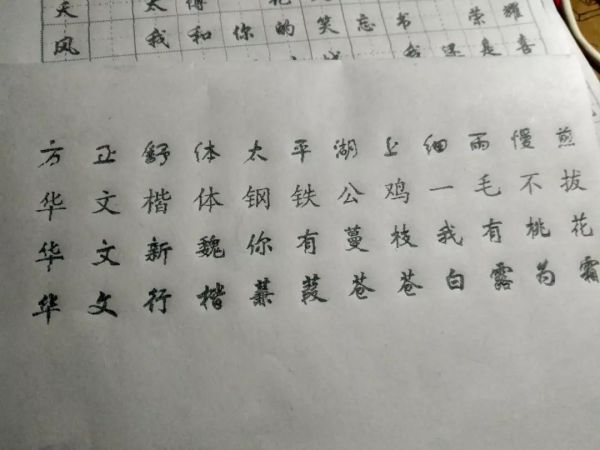 天
太 得 花
风 我和你的笑忘书 荣耀
我还是喜
方正舒体太平湖上细雨慢煎
华文楷体钢铁公鸡一毛不拔
华文新魏你有蔓枝我有桃花
华文行楷蒹葭苍苍白露为霜